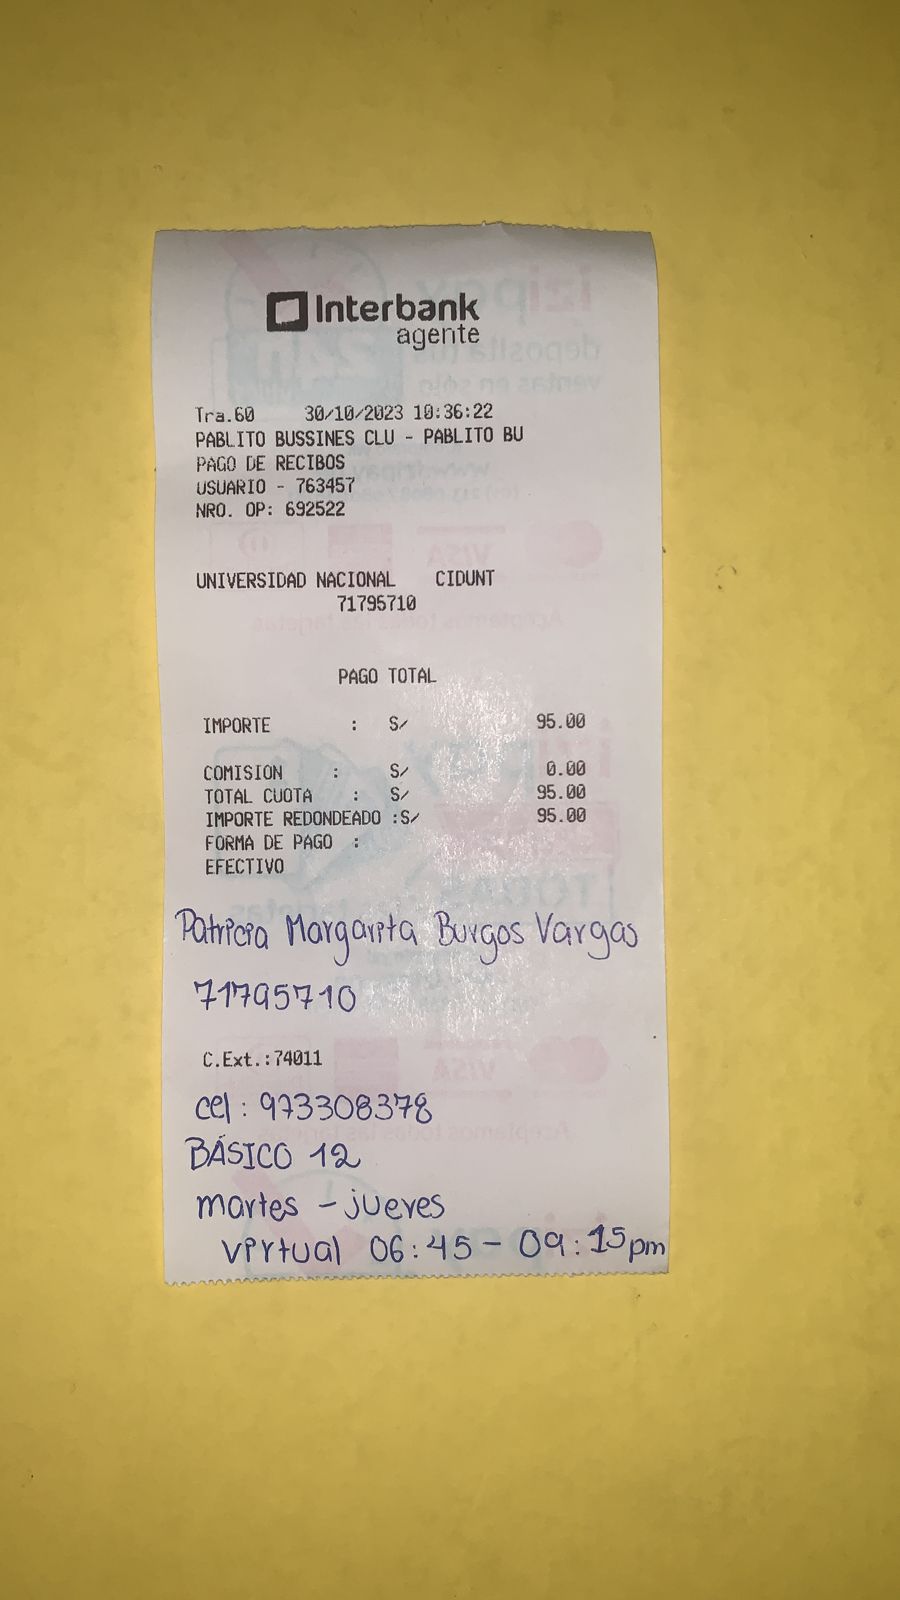 Interbank
agente
Tra.60 30/10/2023 10:36:22
PABLITO BUSSINES CLU - PABLITO BU
PAGO DE RECIBOS
USUARIO - 763457
NRO. OP: 692522
UNIVERSIDAD NACIONAL CIDUNT
71795710
PAGO TOTAL
IMPORTE : S/ 95.00
COMISION : S/ 0.00
TOTAL CUOTA : S/ 95.00
IMPORTE REDONDEADO :S/ 95.00
FORMA DE PAGO :
EFECTIVO
Patricia Margarita Burgos Vargas
71795710
C.Ext.:74011
cel: 973308378
BÁSICO 12
martes - jueves
virtual 06:45 - 09:15pm